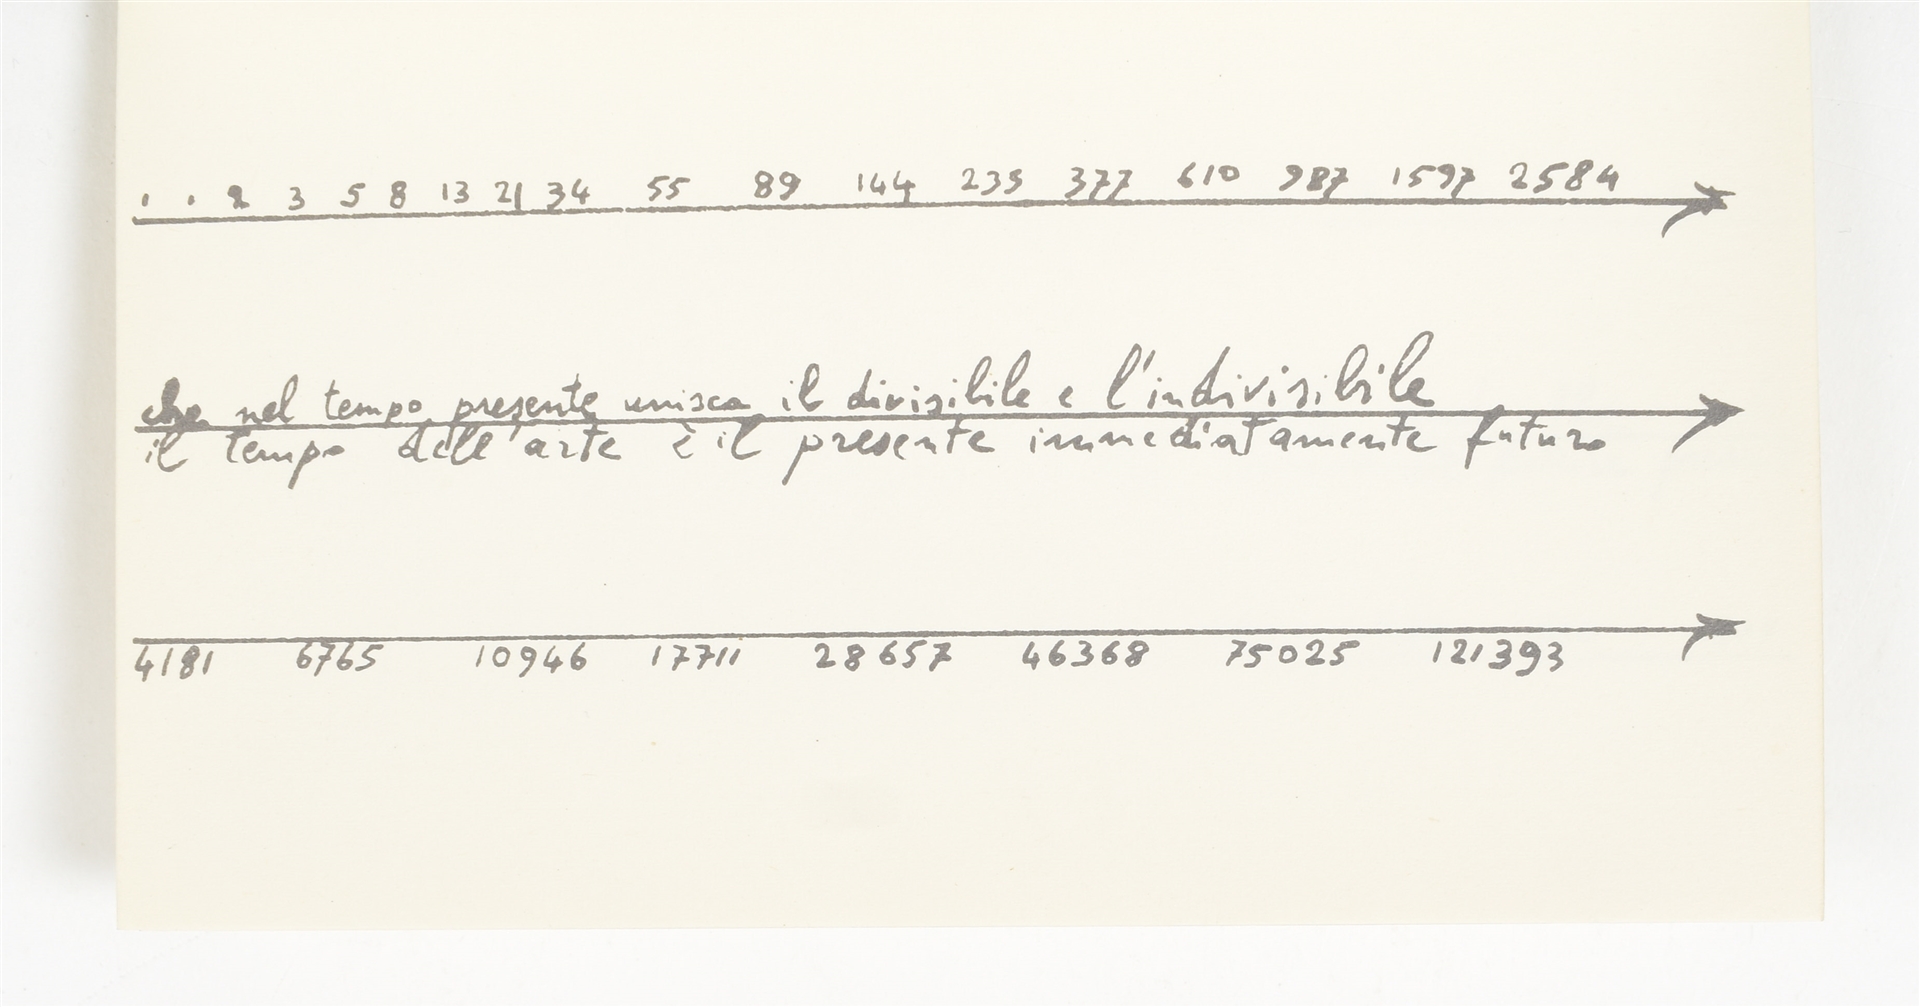 1 1 2 3 5 8 13 21 34 55 89 144 233 377 610 987 1597 2584
che nel tempo presente unisca il divisibile e l'indivisibile
il tempo dell'arte è il presente immediatamente futuro
4181 6765 10946 17711 28657 46368 75025 121393